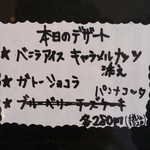 本日のデザート
★ バニラアイス キャラメルナッツ
添え
★ ガトーショコラ
パンナコッタ
★ ブルーベリーチーズケーキ
各280円(税込)